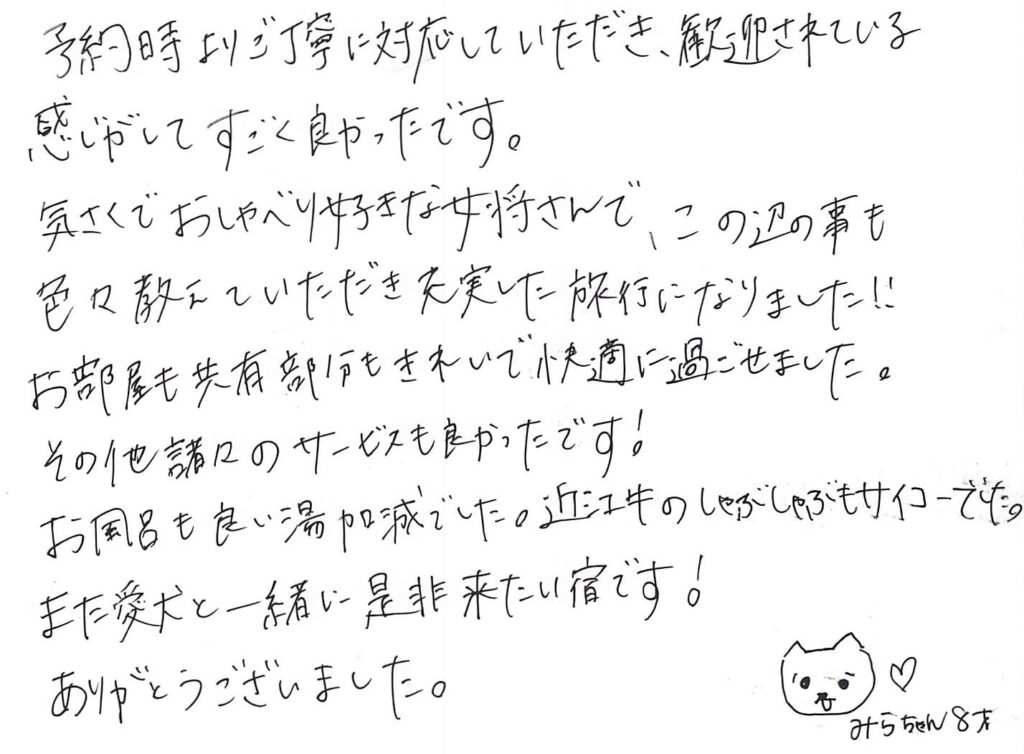 予約時よりご丁寧に対応していただき、歓迎されている
感じがして すごく良かったです。
気さくでおしゃべり好きな女将さんで、この辺の事も
色々教えていただき充実した旅行になりました!!
お部屋も共有部分もきれいで快適に過ごせました。
その他諸々のサービスも良かったです!
お風呂も良い湯加減でした。近江牛のしゃぶしゃぶもサイコーでした。
また愛犬と一緒に是非来たい宿です!
ありがとうございました。
♡
みらちゃん8才